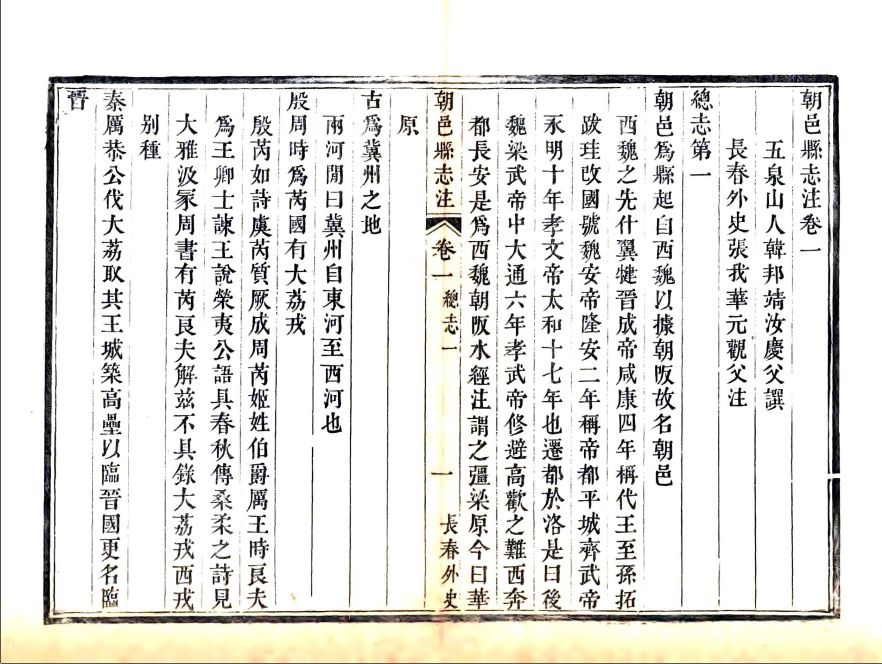 朝邑縣志注卷一
五泉山人韓邦靖汝慶父譔
長春外史張我華元觀父注
總志第一
朝邑爲縣起自西魏以據朝阪故名朝邑
西魏之先什翼犍晉成帝咸康四年稱代王至孫拓
跋珪改國號魏安帝隆安二年稱帝都平城齊武帝
永明十年孝文帝太和十七年也遷都於洛是曰後
魏梁武帝中大通六年孝武帝修避高歡之難西奔
都長安是爲西魏朝阪水經注謂之彊梁原今曰華
朝邑縣志注 卷一 總志一 一 長春外史
原
古爲冀州之地
兩河閒曰冀州自東河至西河也
殷周時爲芮國有大荔戎
殷芮如詩虞芮質厥成周芮姬姓伯爵厲王時良夫
爲王卿士諫王說榮夷公語具春秋傳桑柔之詩見
大雅汲冢周書有芮良夫解茲不具錄大荔戎西戎
别種
秦厲恭公伐大荔取其王城築高壘以臨晉國更名臨
晉